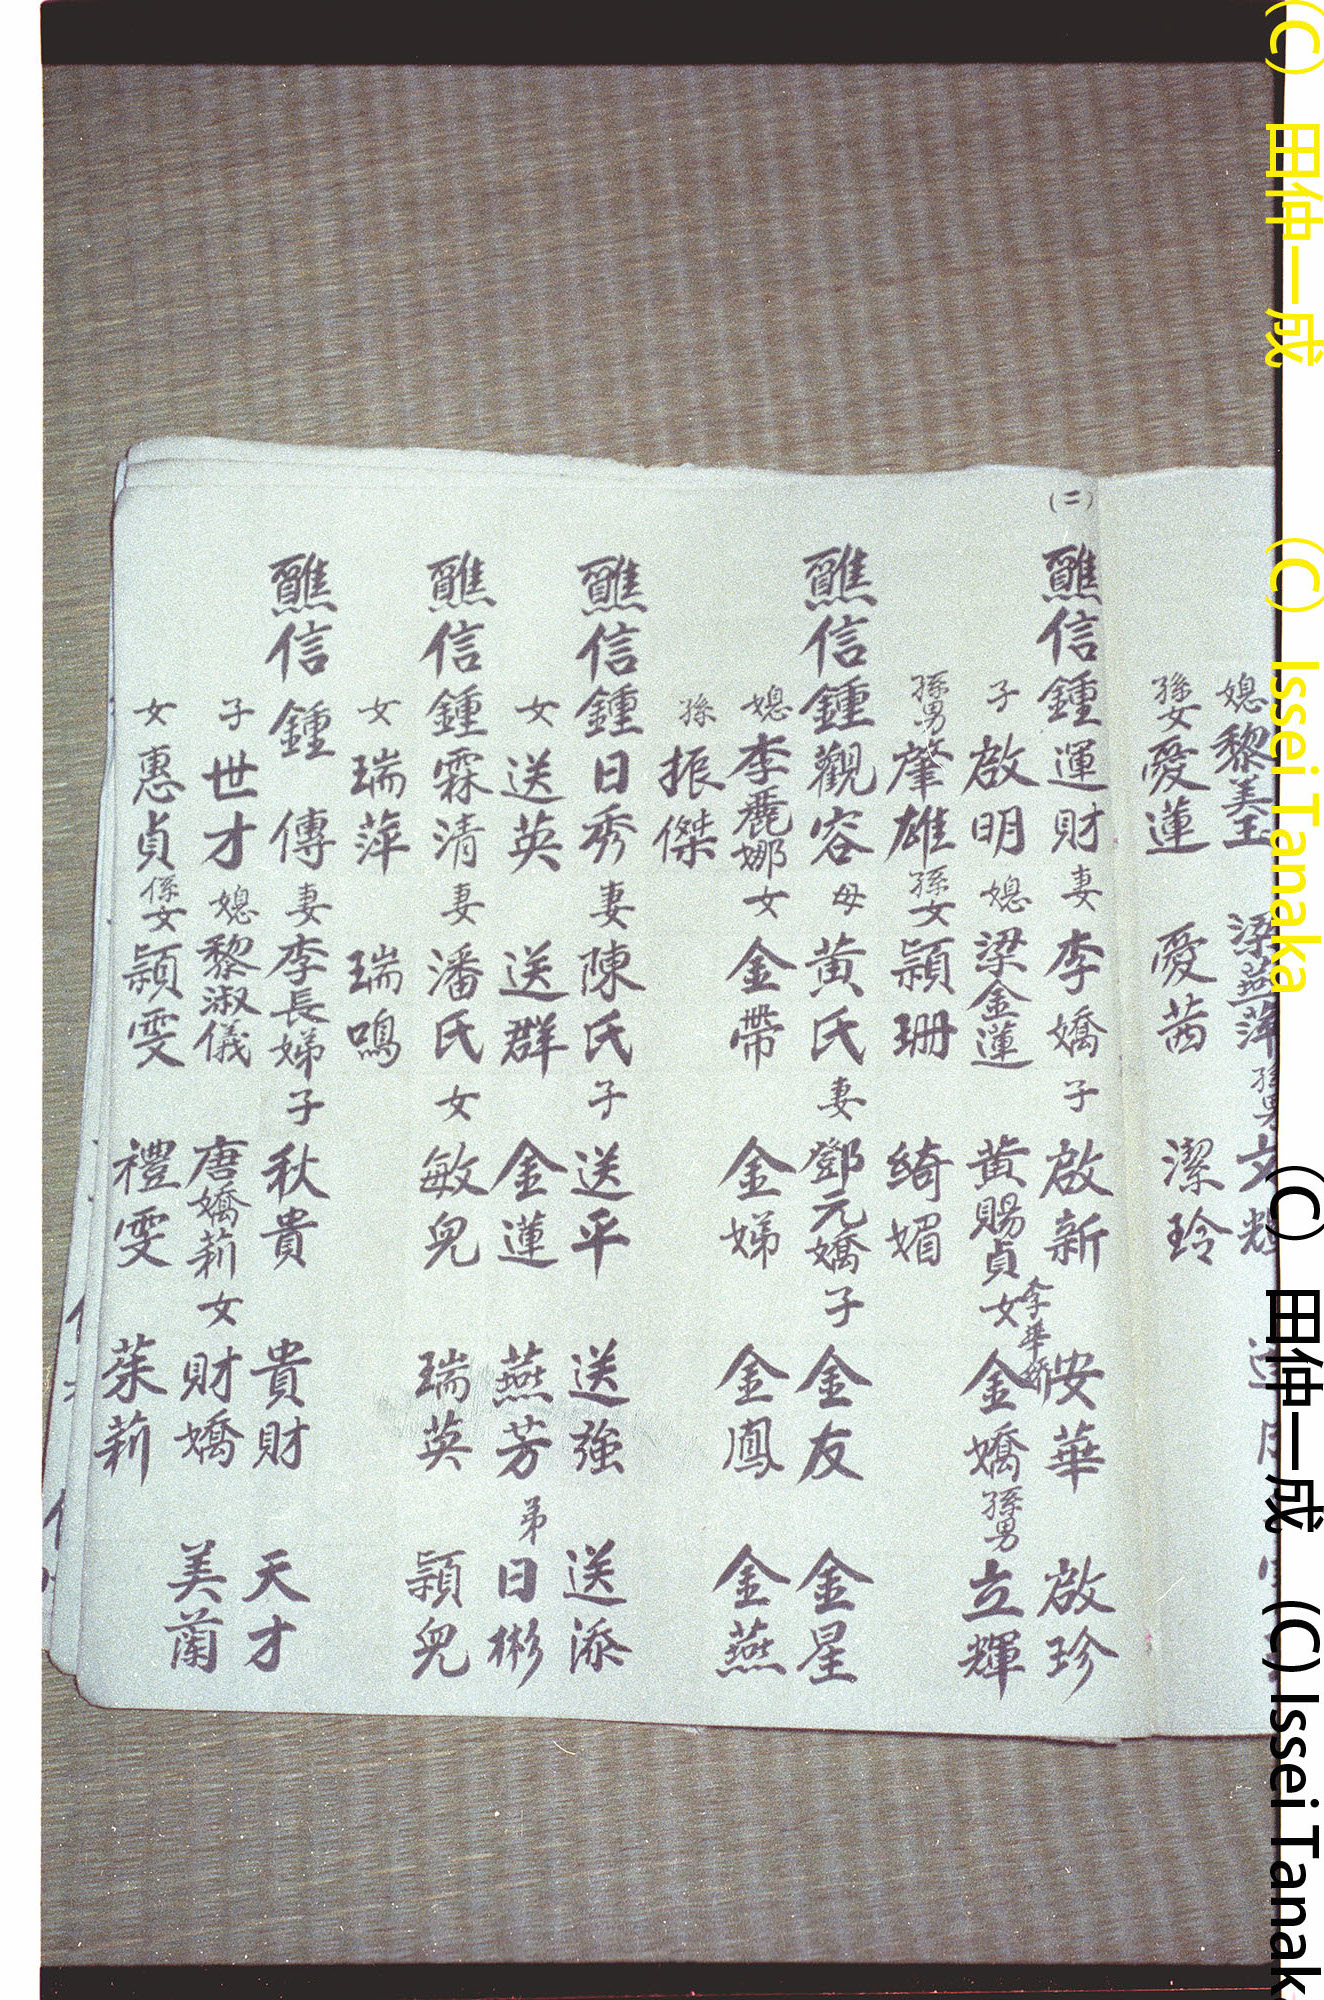 媳黎美玉 梁燕萍 孫男文輝
孫女愛蓮 愛茜 潔玲
(二)
醮信鍾運財 妻李嬌 子啟新 安華 啟珍
李華嬌
子啟明 媳梁金蓮 黃賜貞 女金嬌 孫男立輝
孫男肇雄 孫女穎珊 綺媚
醮信鍾觀容 母黃氏 妻鄧元嬌 子金友 金星
媳李麗娜 女金帶 金娣 金鳳 金燕
孫振傑
醮信鍾日秀 妻陳氏 子送平 送強 送添
女送英 送群 金蓮 燕芳 弟日彬
醮信鍾霖清 妻潘氏 女敏兒 瑞英 穎兒
女瑞萍 瑞鳴
醮信鍾傳 妻李長娣 子秋貴 貴財 天才
子世才 媳黎淑儀 唐嬌莉 女財嬌 美蘭
女惠貞 孫女穎雯 禮雯 茱莉
(C) 田仲一成 (C) Issei Tanaka
(C) 田仲一成 (C) Issei Tanak